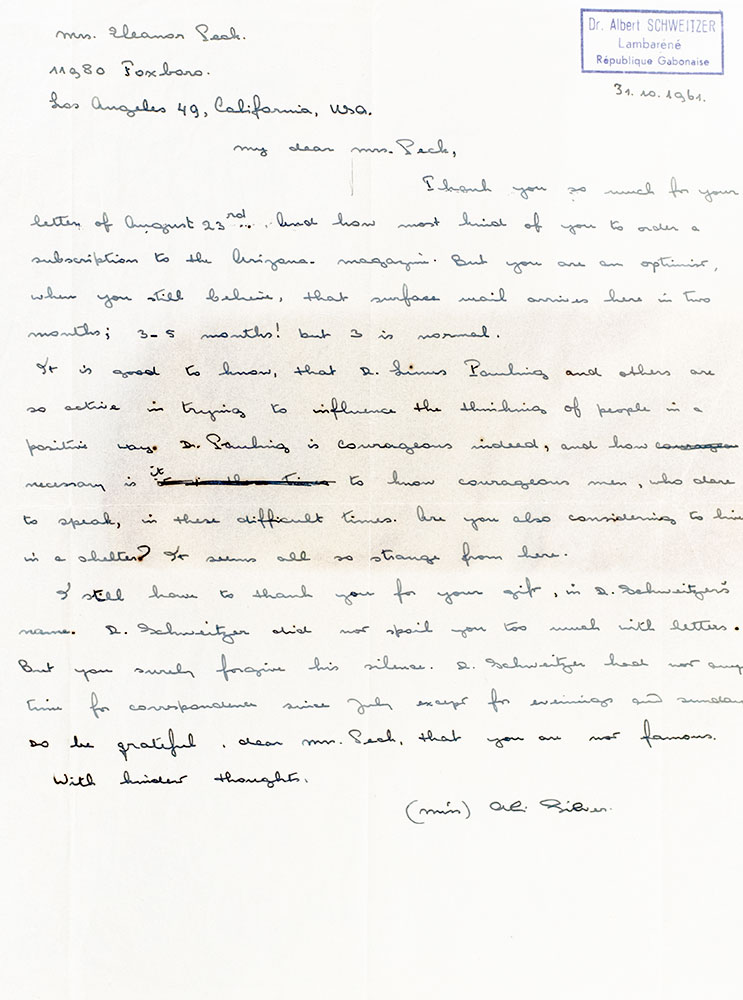 Mrs. Eleanor Peck.
Dr. Albert SCHWEITZER
Lambaréné
République Gabonaise
11980 Foxboro.
31.10.1961.
Los Angeles 49, California, USA.
My dear Mrs. Peck,
Thank you so much for your
letter of August 23rd... And how most kind of you to order a
subscription to the Arizona- magazin. But you are an optimist,
when you still believe, that surface mail arrives here in two
months; 3-5 months! but 3 is normal.
It is good to know, that D. Linus Pauling and others are
so active in trying to influence the thinking of people in a
positive way. D. Pauling is courageous indeed, and how courageou
necessary is it to know courageous men, who dare
to speak, in these difficult times. Are you also considering to live
in a shelter? It seems all so strange from here.
I still have to thank you for your gift, in D. Schweitzer's
name. D. Schweitzer did not spoil you too much with letters.
But you surely forgive his silence. D. Schweitzer had not any
time for correspondence since July except for evenings and sunday
Do be grateful, dear Mrs. Peck, that you are not famous.
With kindest thoughts.
(Miss) Ali Silver.